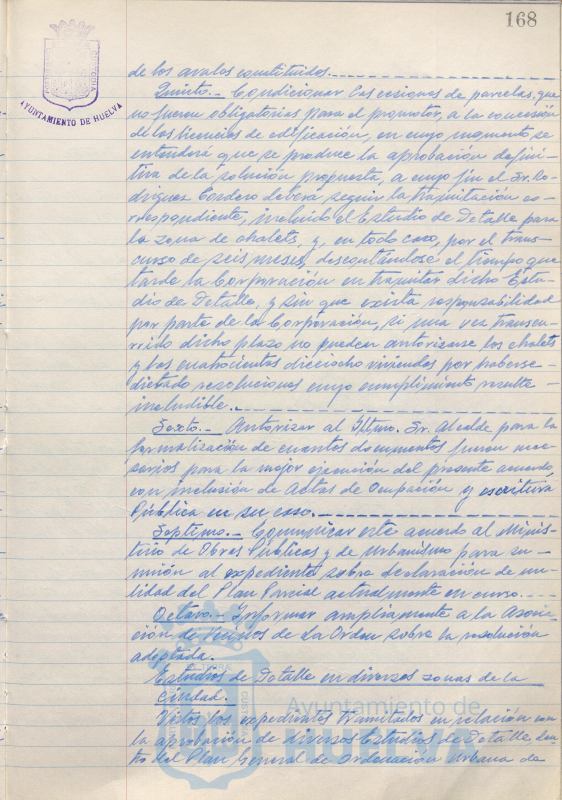 168
AYUNTAMIENTO DE HUELVA
de los avales constituidos.
Quinto.- Condicionar las cesiones de parcelas, que
no fueren obligatorias para el promotor, a la concesión
de las licencias de edificación, en cuyo momento se
entenderá que se produce la aprobación defini-
tiva de la solución propuesta, a cuyo fin el Sr. Ro-
dríguez Cordero deberá seguir la tramitación co-
rrespondiente, incluido el Estudio de Detalle para
la zona de chalets, y, en todo caso, por el trans-
curso de seis meses, descontándose el tiempo que
tarde la Corporación en tramitar dicho Estu-
dio de Detalle, y sin que exista responsabilidad
por parte de la Corporación, si una vez transcu-
rrido dicho plazo no pueden autorizarse los chalets
y las cuatrocientas dieciocho viviendas por haberse
dictado resoluciones cuyo cumplimiento resulte
ineludible.
Sexto.- Autorizar al Iltmo. Sr. Alcalde para la
formalización de cuantos documentos fueren nece-
sarios para la mejor ejecución del presente acuerdo,
con inclusión de Actas de Ocupación y escritura
Pública en su caso.
Séptimo.- Comunicar este acuerdo al Minis-
terio de Obras Públicas y de Urbanismo para su
unión al expediente sobre declaración de nu-
lidad del Plan Parcial actualmente en curso.
Octavo.- Informar ampliamente a la Asocia-
ción de Vecinos de La Orden sobre la resolución
adoptada.
Estudios de Detalle en diversas zonas de la
Ciudad.
Vistos los expedientes tramitados en relación con
la aprobación de diversos Estudios de Detalle, den-
tro del Plan General de Ordenación Urbana de
Ayuntamiento de
HUELVA